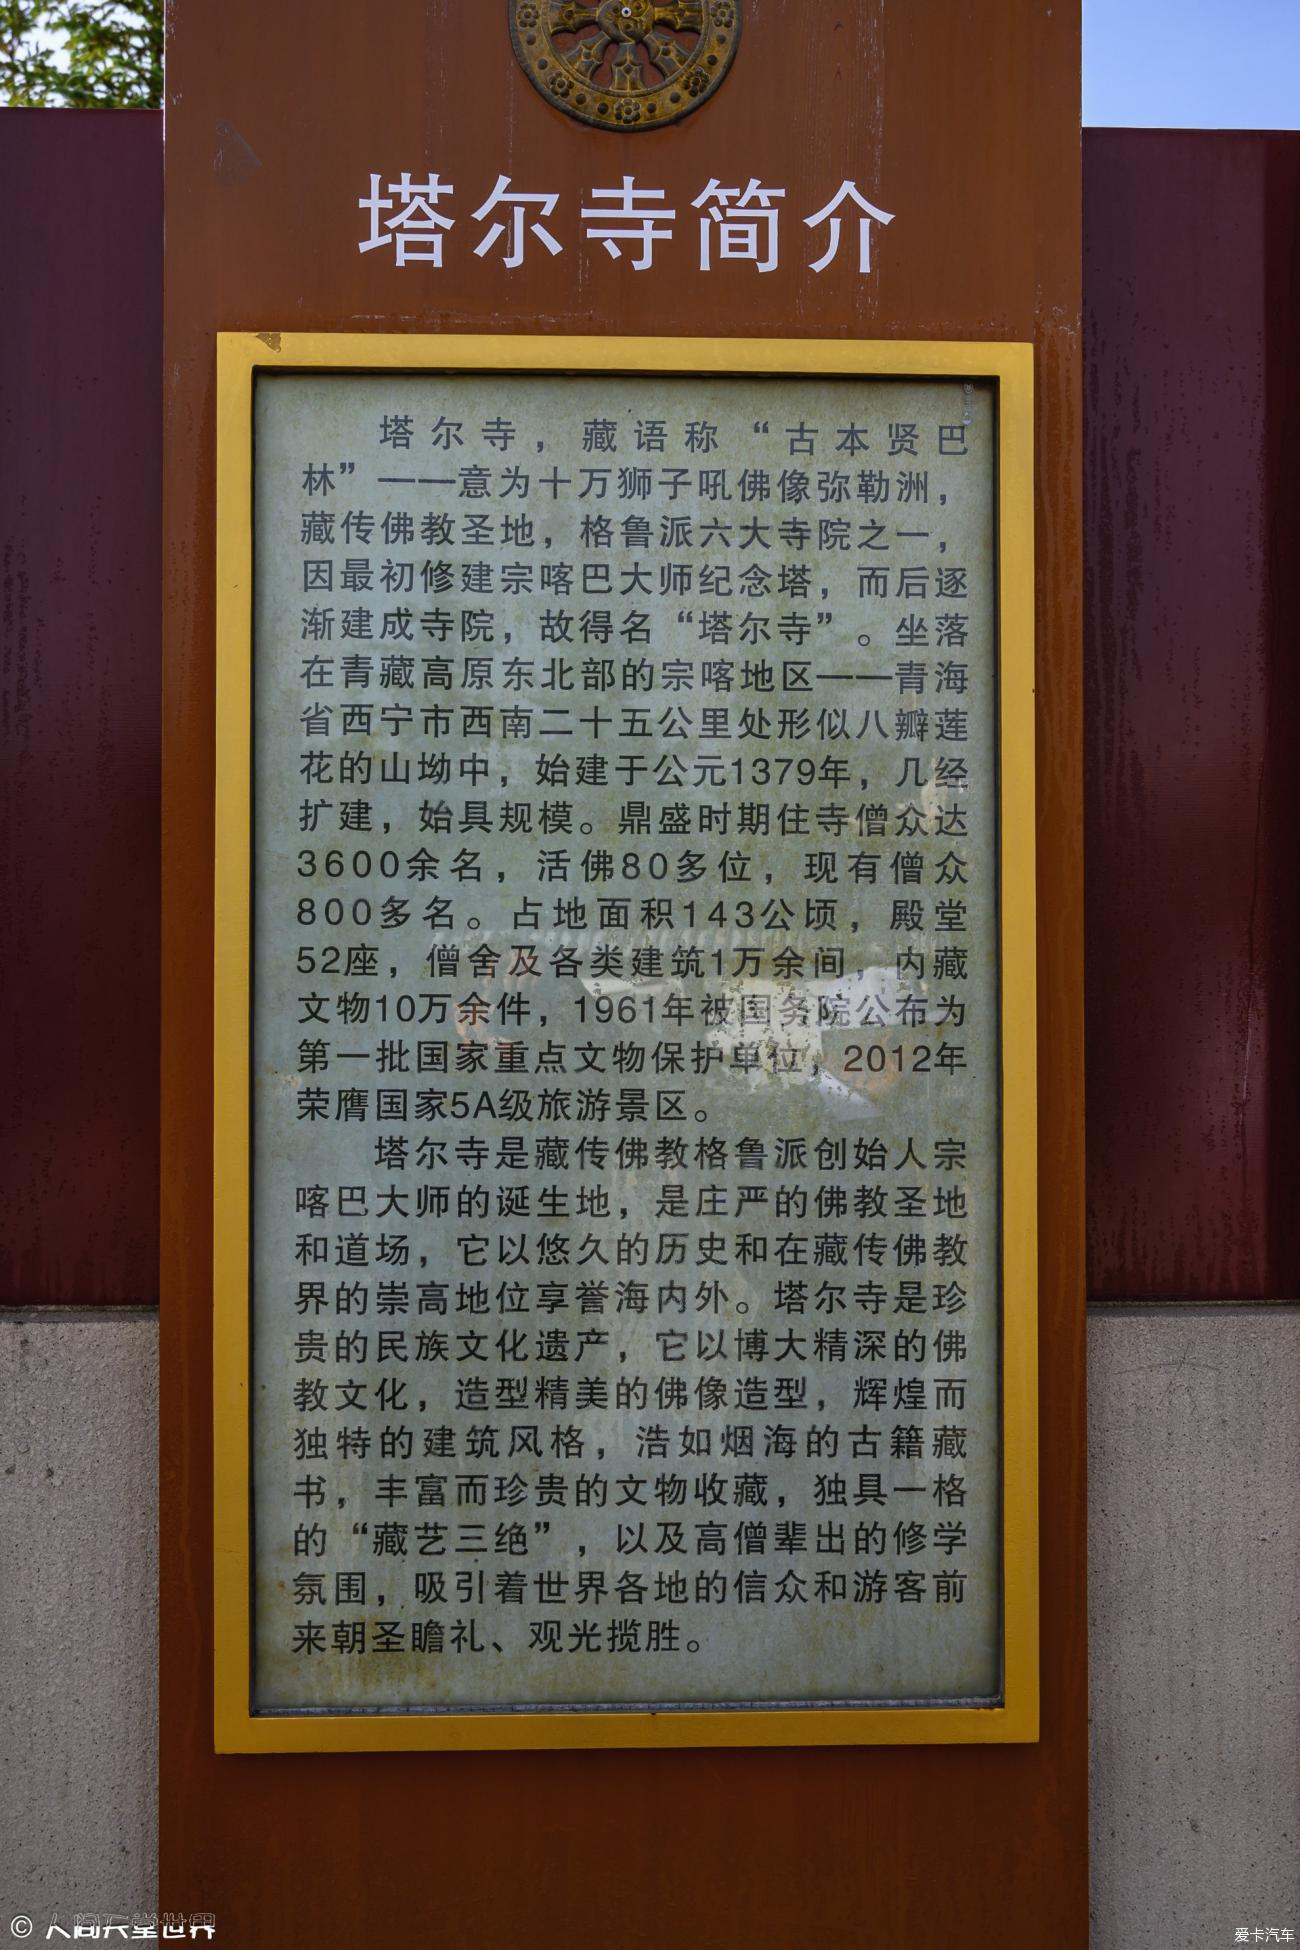 塔尔寺简介
塔尔寺，藏语称“古本贤巴
林”——意为十万狮子吼佛像弥勒洲，
藏传佛教圣地，格鲁派六大寺院之一，
因最初修建宗喀巴大师纪念塔，而后逐
渐建成寺院，故得名“塔尔寺”。坐落
在青藏高原东北部的宗喀地区——青海
省西宁市西南二十五公里处形似八瓣莲
花的山坳中，始建于公元1379年，几经
扩建，始具规模。鼎盛时期住寺僧众达
3600余名，活佛80多位，现有僧众
800多名。占地面积143公顷，殿堂
52座，僧舍及各类建筑1万余间，内藏
文物10万余件，1961年被国务院公布为
第一批国家重点文物保护单位，2012年
荣膺国家5A级旅游景区。
塔尔寺是藏传佛教格鲁派创始人宗
喀巴大师的诞生地，是庄严的佛教圣地
和道场，它以悠久的历史和在藏传佛教
界的崇高地位享誉海内外。塔尔寺是珍
贵的民族文化遗产，它以博大精深的佛
教文化，造型精美的佛像造型，辉煌而
独特的建筑风格，浩如烟海的古籍藏
书，丰富而珍贵的文物收藏，独具一格
的“藏艺三绝”，以及高僧辈出的修学
氛围，吸引着世界各地的信众和游客前
来朝圣瞻礼、观光揽胜。
© 人间天堂世界
爱卡汽车